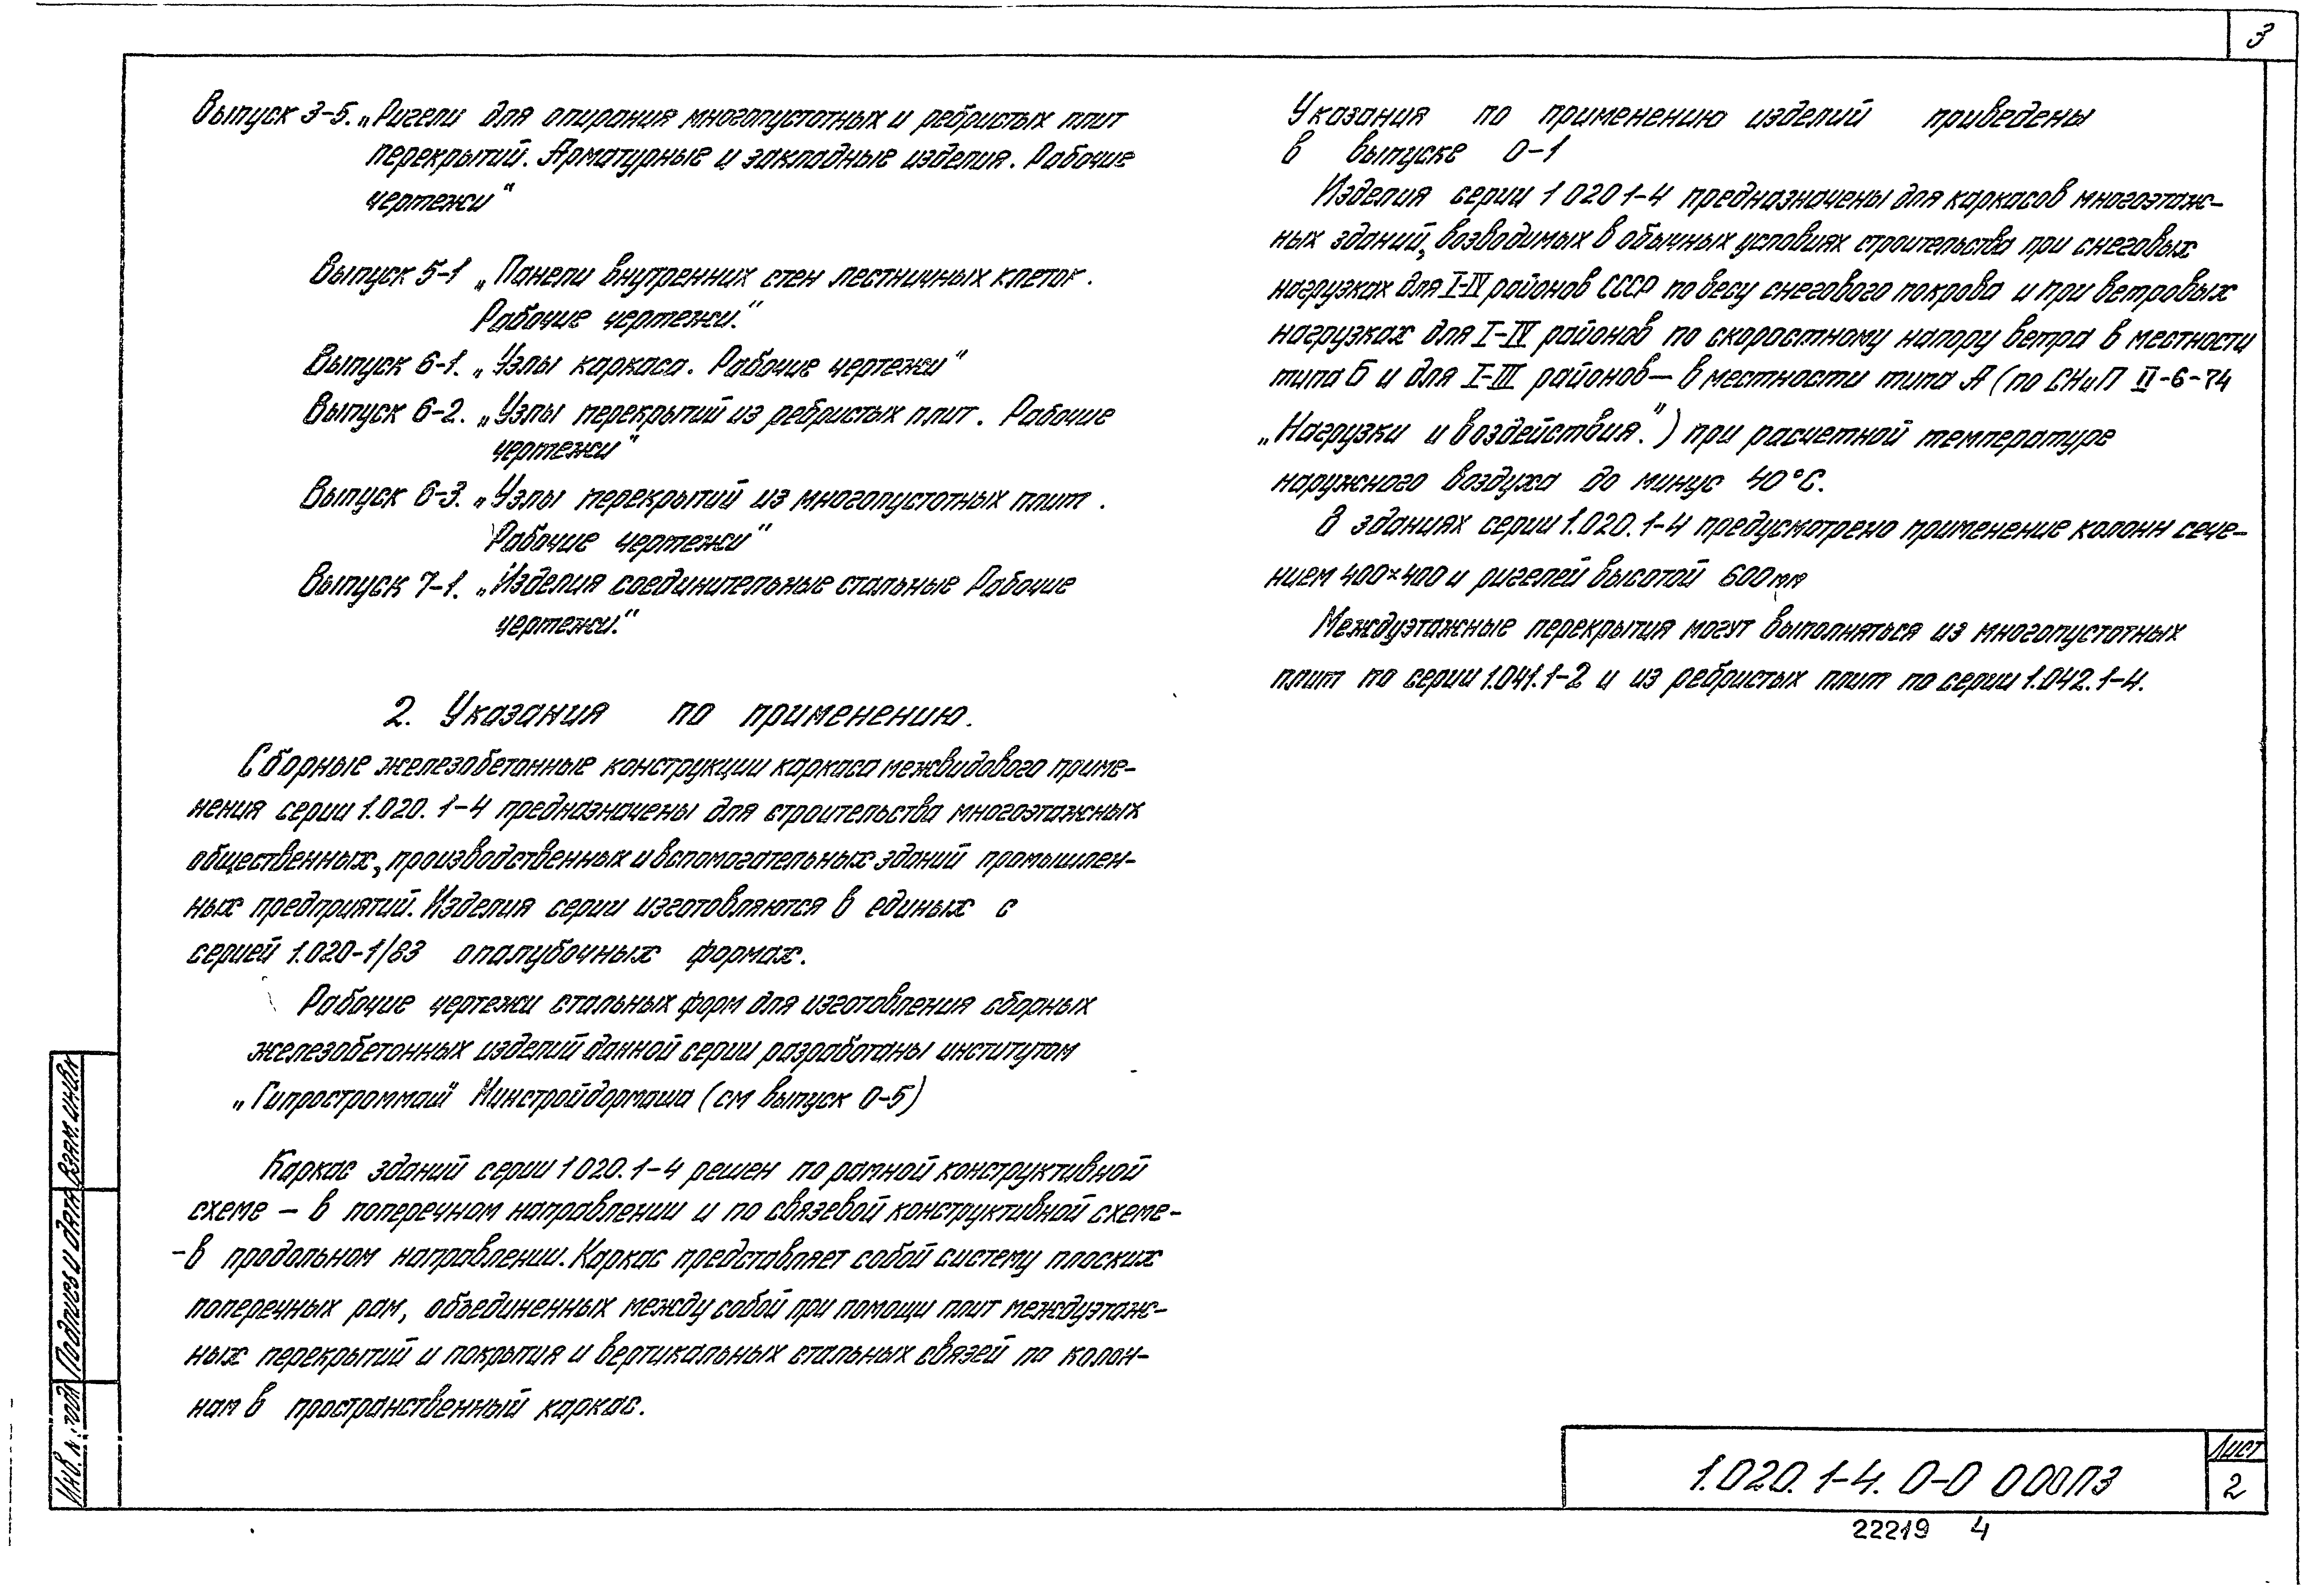 3
Выпуск 3-5. „Ригели для опирания многопустотных и ребристых плит
перекрытий. Арматурные и закладные изделия. Рабочие
чертежи“
Выпуск 5-1 „Панели внутренних стен лестничных клеток.
Рабочие чертежи.“
Выпуск 6-1. „Узлы каркаса. Рабочие чертежи“
Выпуск 6-2. „Узлы перекрытий из ребристых плит. Рабочие
чертежи“
Выпуск 6-3. „Узлы перекрытий из многопустотных плит.
Рабочие чертежи“
Выпуск 7-1. „Изделия соединительные стальные Рабочие
чертежи.“
2. Указания по применению.
Сборные железобетонные конструкции каркаса межвидового приме-
нения серии 1.020.1-4 предназначены для строительства многоэтажных
общественных, производственных и вспомогательных зданий промышлен-
ных предприятий. Изделия серии изготовляются в единых с
серией 1.020-1/83 опалубочных формах.
Рабочие чертежи стальных форм для изготовления сборных
железобетонных изделий данной серии разработаны институтом
„Гипростроммаш“ Минстройдормаша (см выпуск 0-5)
Каркас зданий серии 1020.1-4 решен по рамной конструктивной
схеме – в поперечном направлении и по связевой конструктивной схеме-
-в продольном направлении. Каркас представляет собой систему плоских
поперечных рам, объединенных между собой при помощи плит междуэтаж-
ных перекрытий и покрытия и вертикальных стальных связей по колон-
нам в пространственный каркас.
Указания по применению изделий приведены
в выпуске 0-1
Изделия серии 1 020 1-4 предназначены для каркасов многоэтаж-
ных зданий, возводимых в обычных условиях строительства при снеговых
нагрузках для I-IV районов СССР по весу снегового покрова и при ветровых
нагрузках для I-IV районов по скоростному напору ветра в местности
типа Б и для I-III районов – в местности типа А (по СНиП II-6-74
„Нагрузки и воздействия.“) при расчетной температуре
наружного воздуха до минус 40°С.
В зданиях серии 1.020.1-4 предусмотрено применение колонн сече-
нием 400×400 и ригелей высотой 600мм
Междуэтажные перекрытия могут выполняться из многопустотных
плит по серии 1.041.1-2 и из ребристых плит по серии 1.042.1-4.
Взам. инв.
Подпись и дата
Инв. № подл
1.020.1-4. 0-0 000ПЗ
Лист
2
22219 4